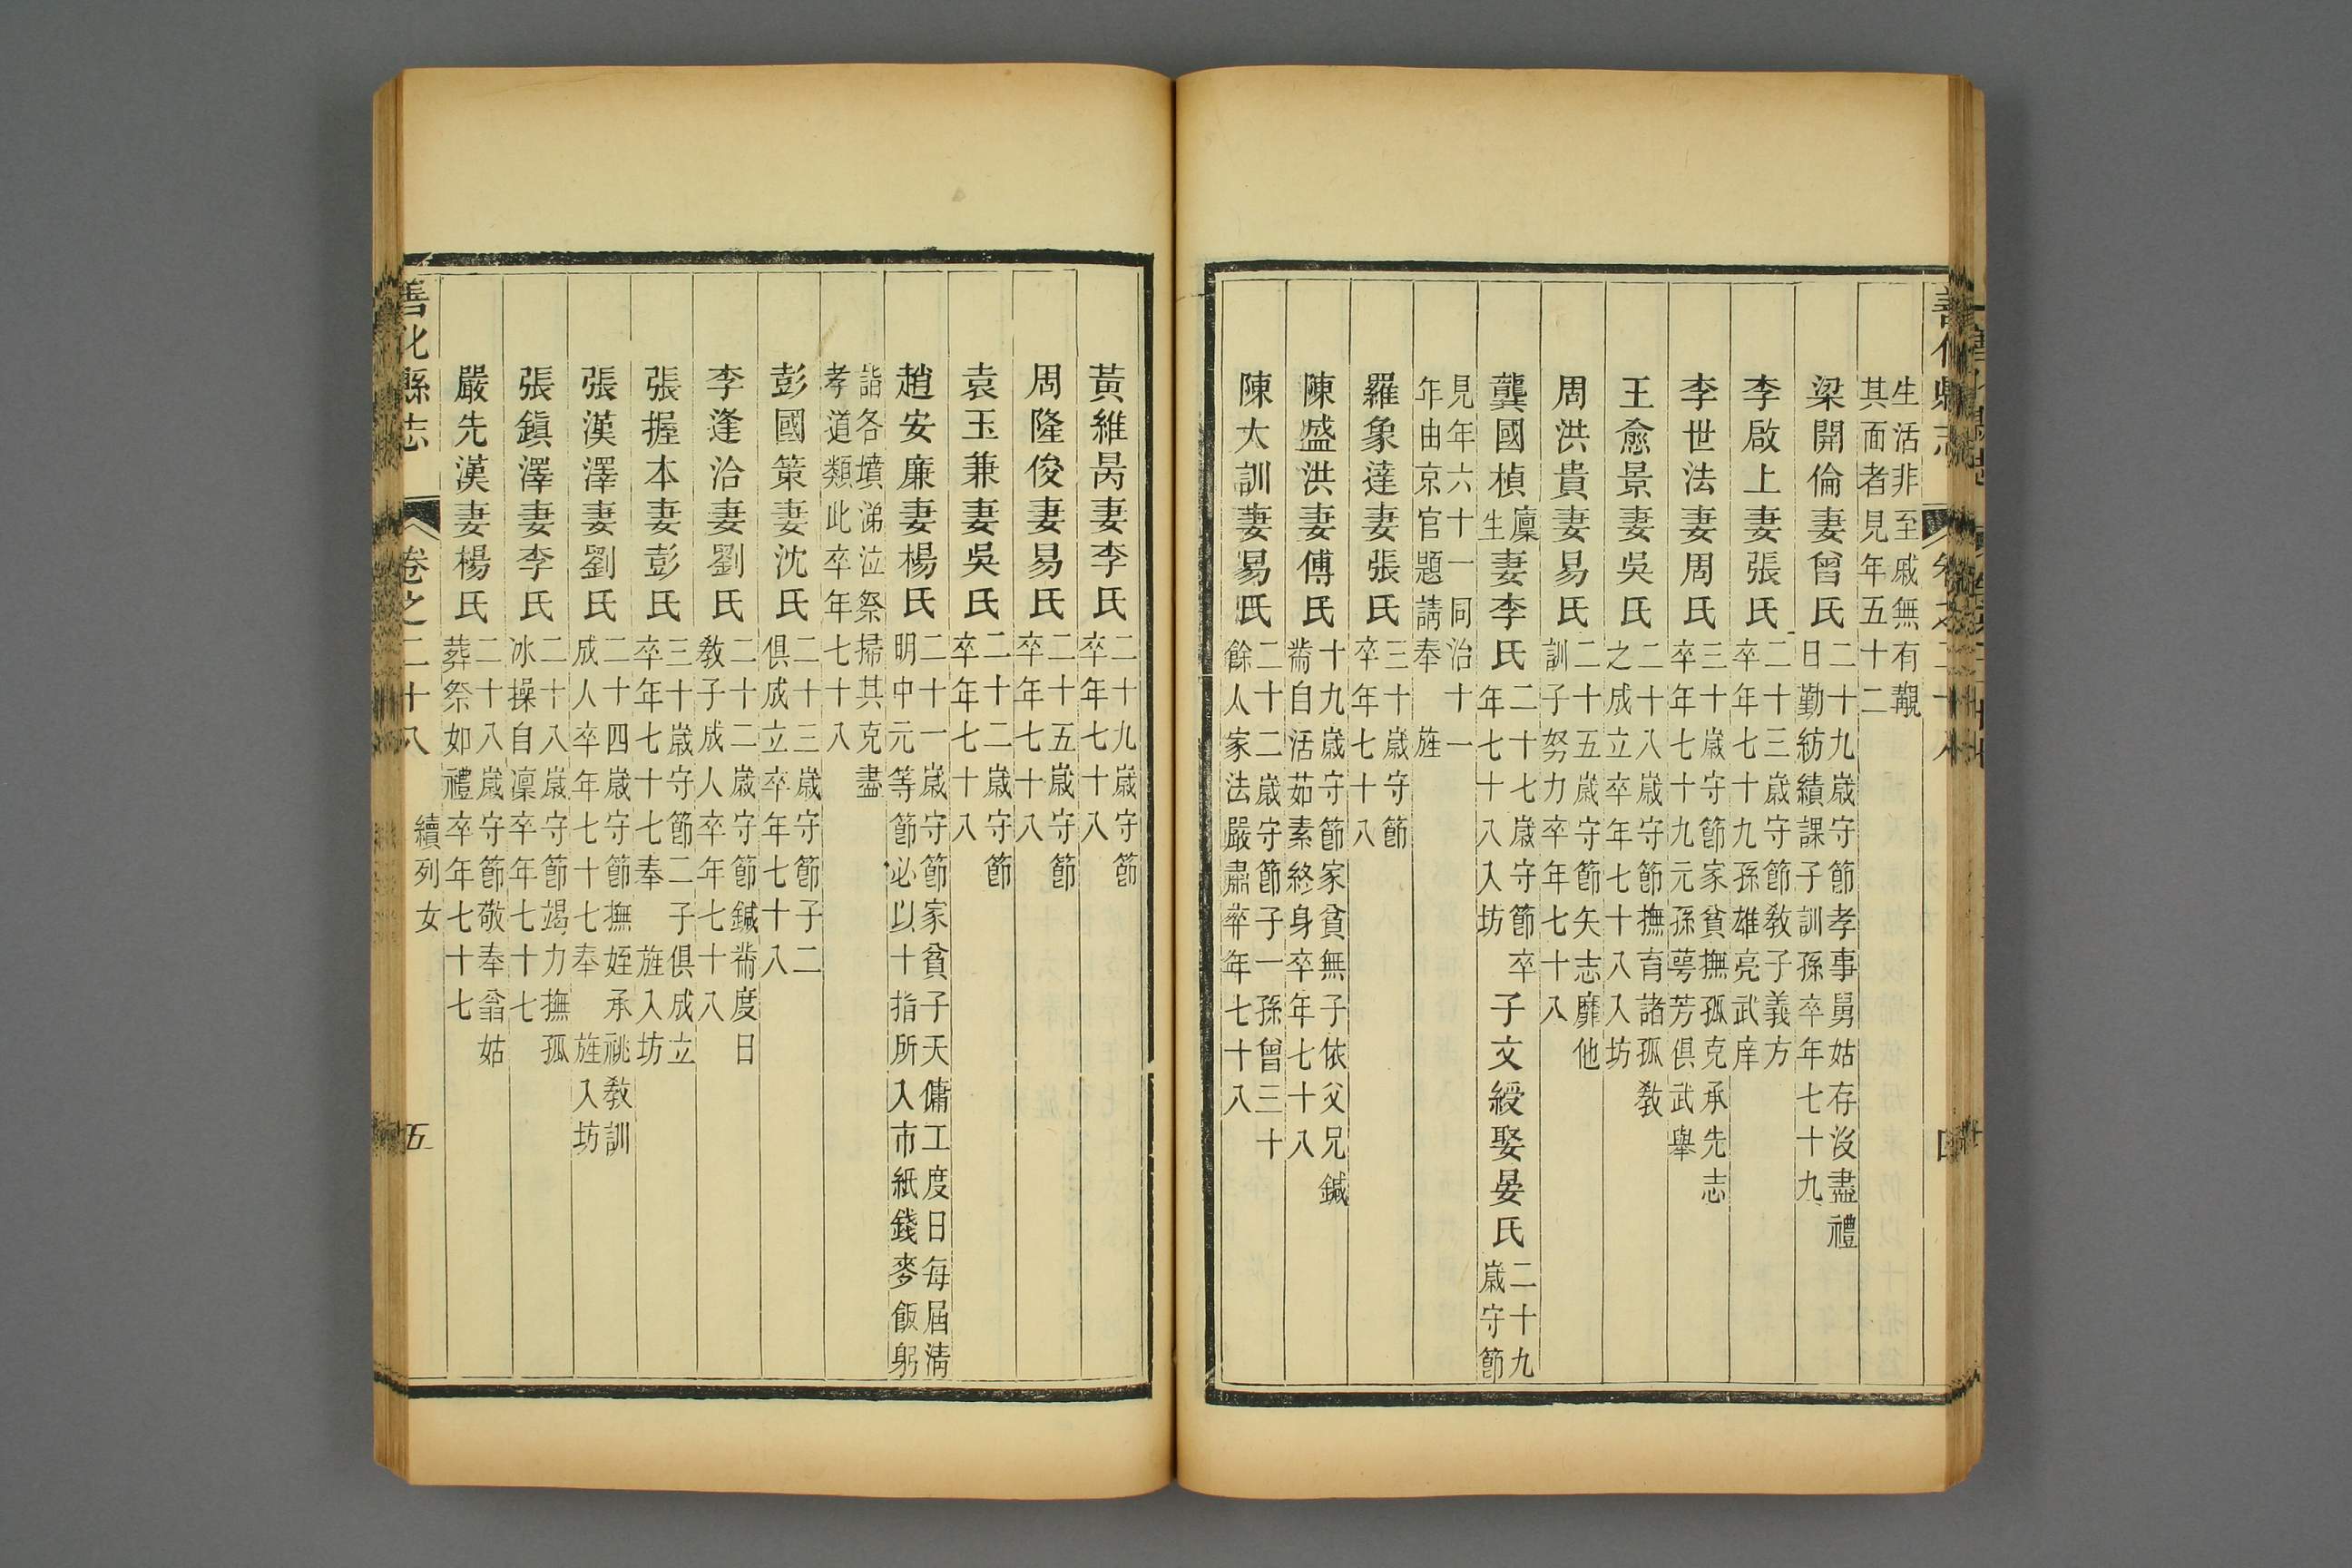 生活非至戚無有覯
其面者見年五十二
梁開倫妻曾氏二十九歲守節孝事舅姑存沒盡禮
日勤紡績課子訓孫卒年七十九
李啟上妻張氏二十三歲守節敎子義方
卒年七十九孫雄亮武庠
李世法妻周氏三十歲守節家貧撫孤克承先志
卒年七十九元孫萼芳俱武舉
王愈景妻吳氏二十八歲守節撫育諸孤敎
之成立卒年七十八入坊
周洪貴妻易氏二十五歲守節矢志靡他
訓子努力卒年七十八
龔國楨廩生妻李氏二十七歲守節卒
年七十八入坊
子文綬娶晏氏二十九
歲守節
見年六十一同治十一
年由京官題請奉 旌
羅象達妻張氏三十歲守節
卒年七十八
陳盛洪妻傅氏十九歲守節家貧無子依父兄鍼
黹自活茹素終身卒年七十八
陳大訓妻易氏二十二歲守節子一孫曾三十
餘人家法嚴肅卒年七十八
黃維昺妻李氏二十九歲守節
卒年七十八
周隆俊妻易氏二十五歲守節
卒年七十八
袁玉兼妻吳氏二十二歲守節
卒年七十八
趙安廉妻楊氏二十一歲守節家貧子天傭工度日每屆淸
明中元等節必以十指所入市紙錢麥飯躬
詣各墳涕泣祭掃其克盡
孝道類此卒年七十八
彭國策妻沈氏二十三歲守節子二
俱成立卒年七十八
李逢治妻劉氏二十二歲守節鍼黹度日
敎子成人卒年七十八
張握本妻彭氏三十歲守節二子俱成立
卒年七十七奉 旌入坊
張漢澤妻劉氏二十四歲守節撫姪承祧敎訓
成人卒年七十七奉 旌入坊
張鎭澤妻李氏二十八歲守節竭力撫孤
冰操自凜卒年七十七
嚴先漢妻楊氏二十八歲守節敬奉翁姑
葬祭如禮卒年七十七
善化縣志 卷之二十八 續列女 五